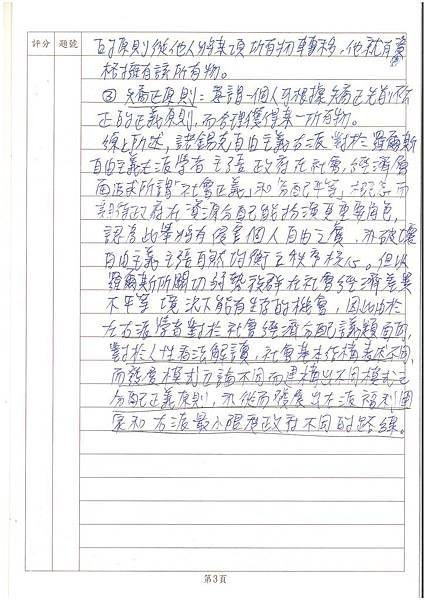 評分 題號
的原則從他人將某項所有物轉移，他就有資
格擁有該所有物。
③矯正原則：意謂一個人可根據矯正先前不公
正的正義原則，而合理獲得某一所有物。
綜上所述，諾錫克自由主義右派對於羅爾斯
自由主義左派學者主張政府在社會、經濟層
面追求所謂「社會正義」和「分配平等」
政府在資源分配能扮演更重要角色，
認為此舉將有侵害個人自由之虞，亦破壞
自由主義主張自然均衡之秩序核心。但以
羅爾斯所關切弱勢族群在社會經濟差異
不平等境況下能有生存的機會，因此由於
左右派學者對於社會經濟分配議題面向，
對於人性看法解讀，社會基本結構表述不同，
而發展模式立論不同而建構出不同模式之
分配正義原則，亦從而發展出左派福利國
家和右派最小限度政府不同的路線。
第3頁